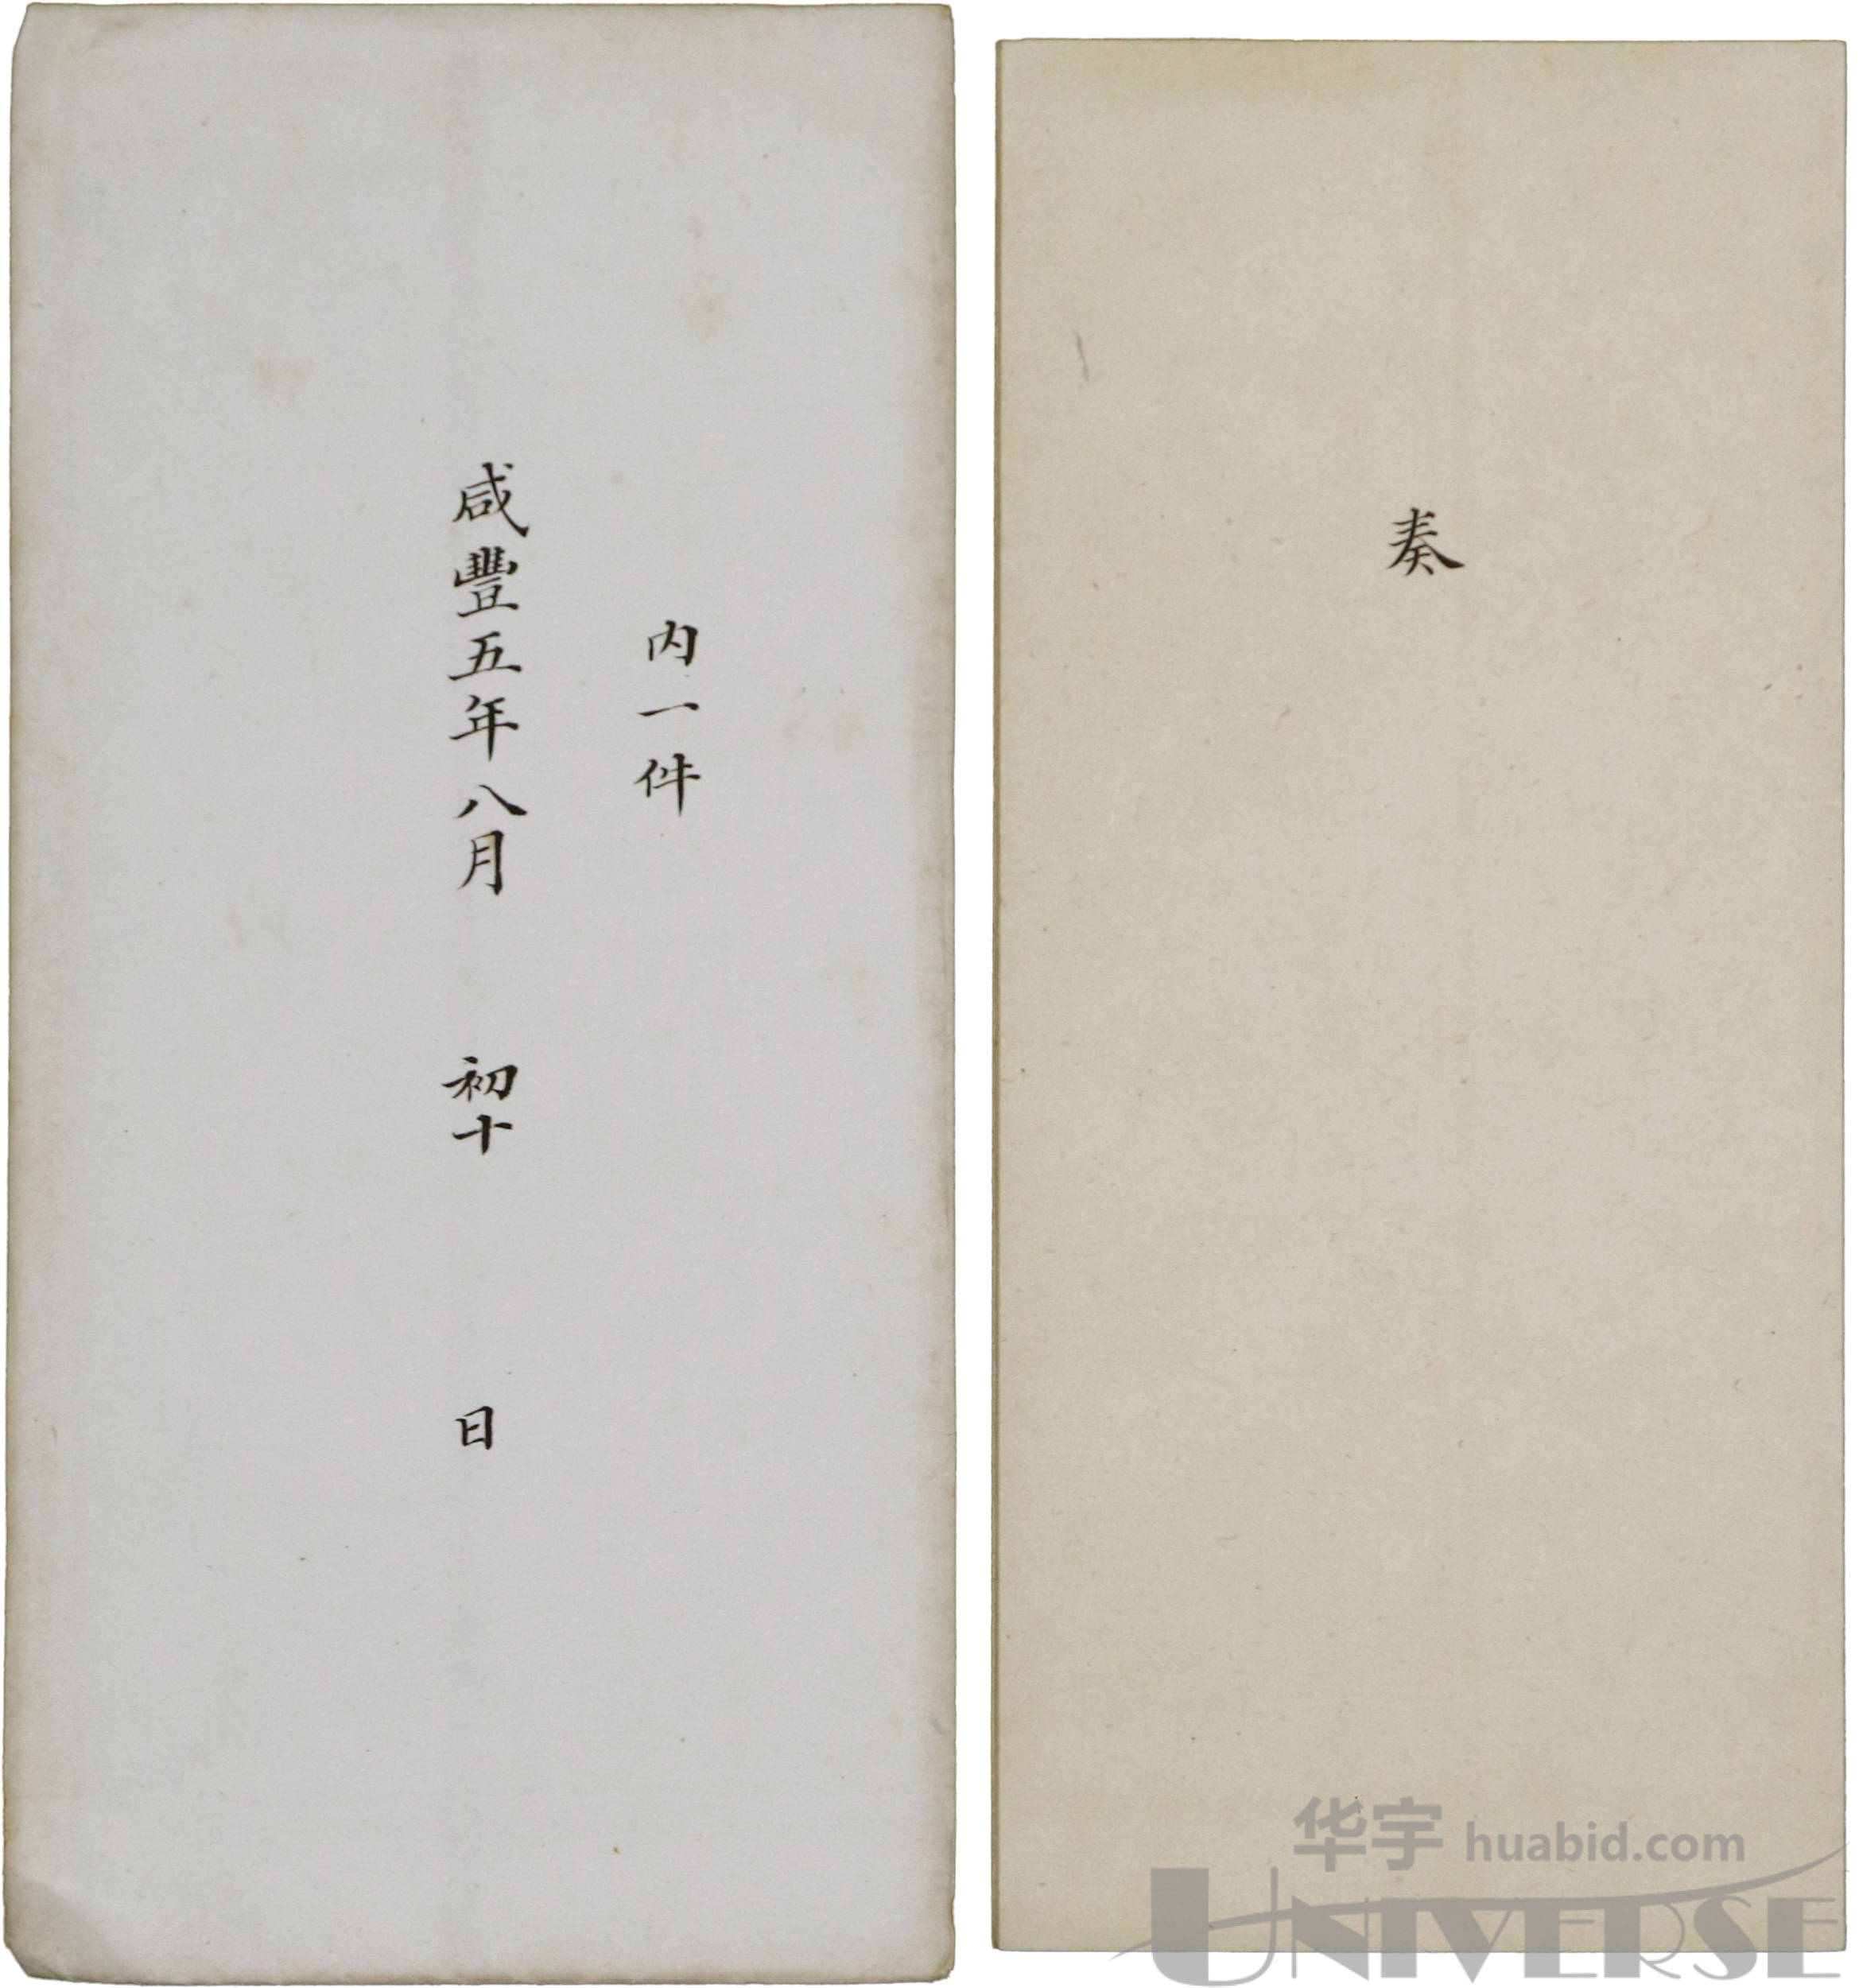 奏
内一件
咸豐五年八月 初十 日
华宇 huabid.com
UNIVERSE